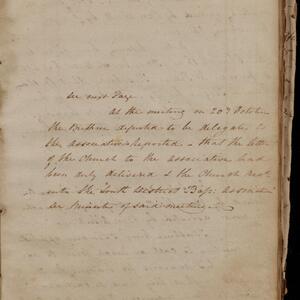 see next Page
At the meeting on 20th October
the Brethren deputed to be delegates to
the association reported - that the letter
of the Church to the association had
been duly delivered & the Church recd
into the South Western Bap: association
See minutes of said meeting